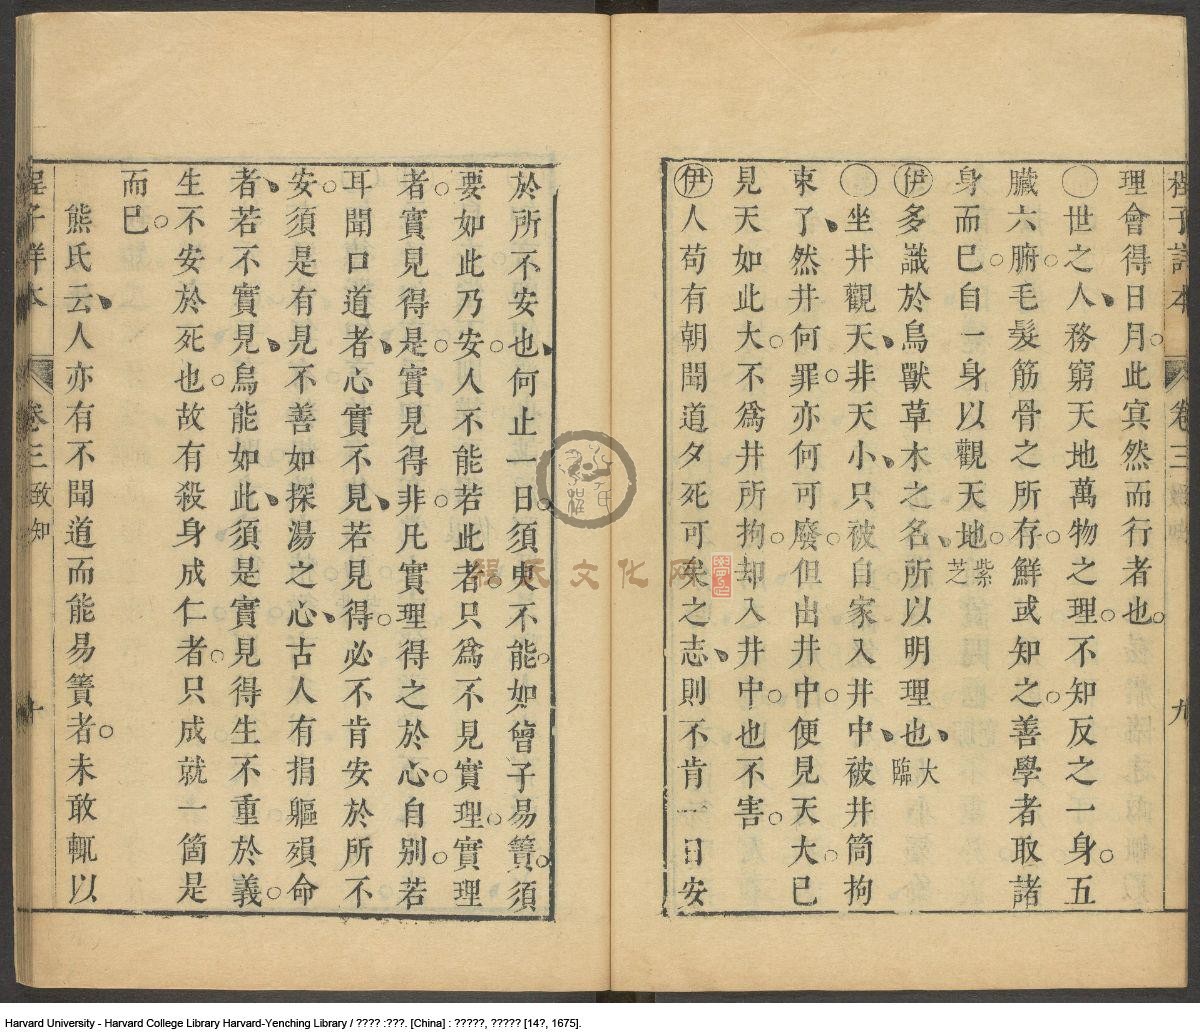 程子詳本 卷三 九
理會得日月此㝠然而行者也
○世之人務窮天地萬物之理不知反之一身五
臟六腑毛髮筋骨之所存鮮或知之善學者取諸
身而巳自一身以觀天地 紫芝
伊多識於鳥獸草木之名所以明理也 大臨
○坐井觀天非天小只被自家入井中被井筒拘
束了然井何罪亦何可廢但出井中便見天大巳
見天如此大不爲井所拘却入井中也不害
伊人苟有朝聞道夕死可矣之志則不肯一日安
於所不安也何止一日須臾不能如曾子易簀須
要如此乃安人不能若此者只爲不見實理實理
者實見得是實見得非凡實理得之於心自别若
耳聞口道者心實不見若見得必不肯安於所不
安須是有見不善如探湯之心古人有捐軀殞命
者若不實見烏能如此須是實見得生不重於義
生不安於死也故有殺身成仁者只成就一箇是
而巳
熊氏云人亦有不聞道而能易簀者未敢輒以
程子詳本 卷三 致知 十
程氏文化网
Harvard University - Harvard College Library Harvard-Yenching Library / ???? :???. [China] : ?????, ????? [14?, 1675].